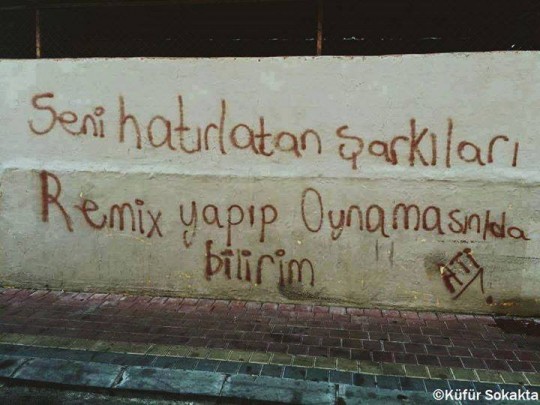 Seni hatırlatan şarkıları
Remix yapıp Oynamasınıda
bilirim
ATİ
©Küfür Sokakta